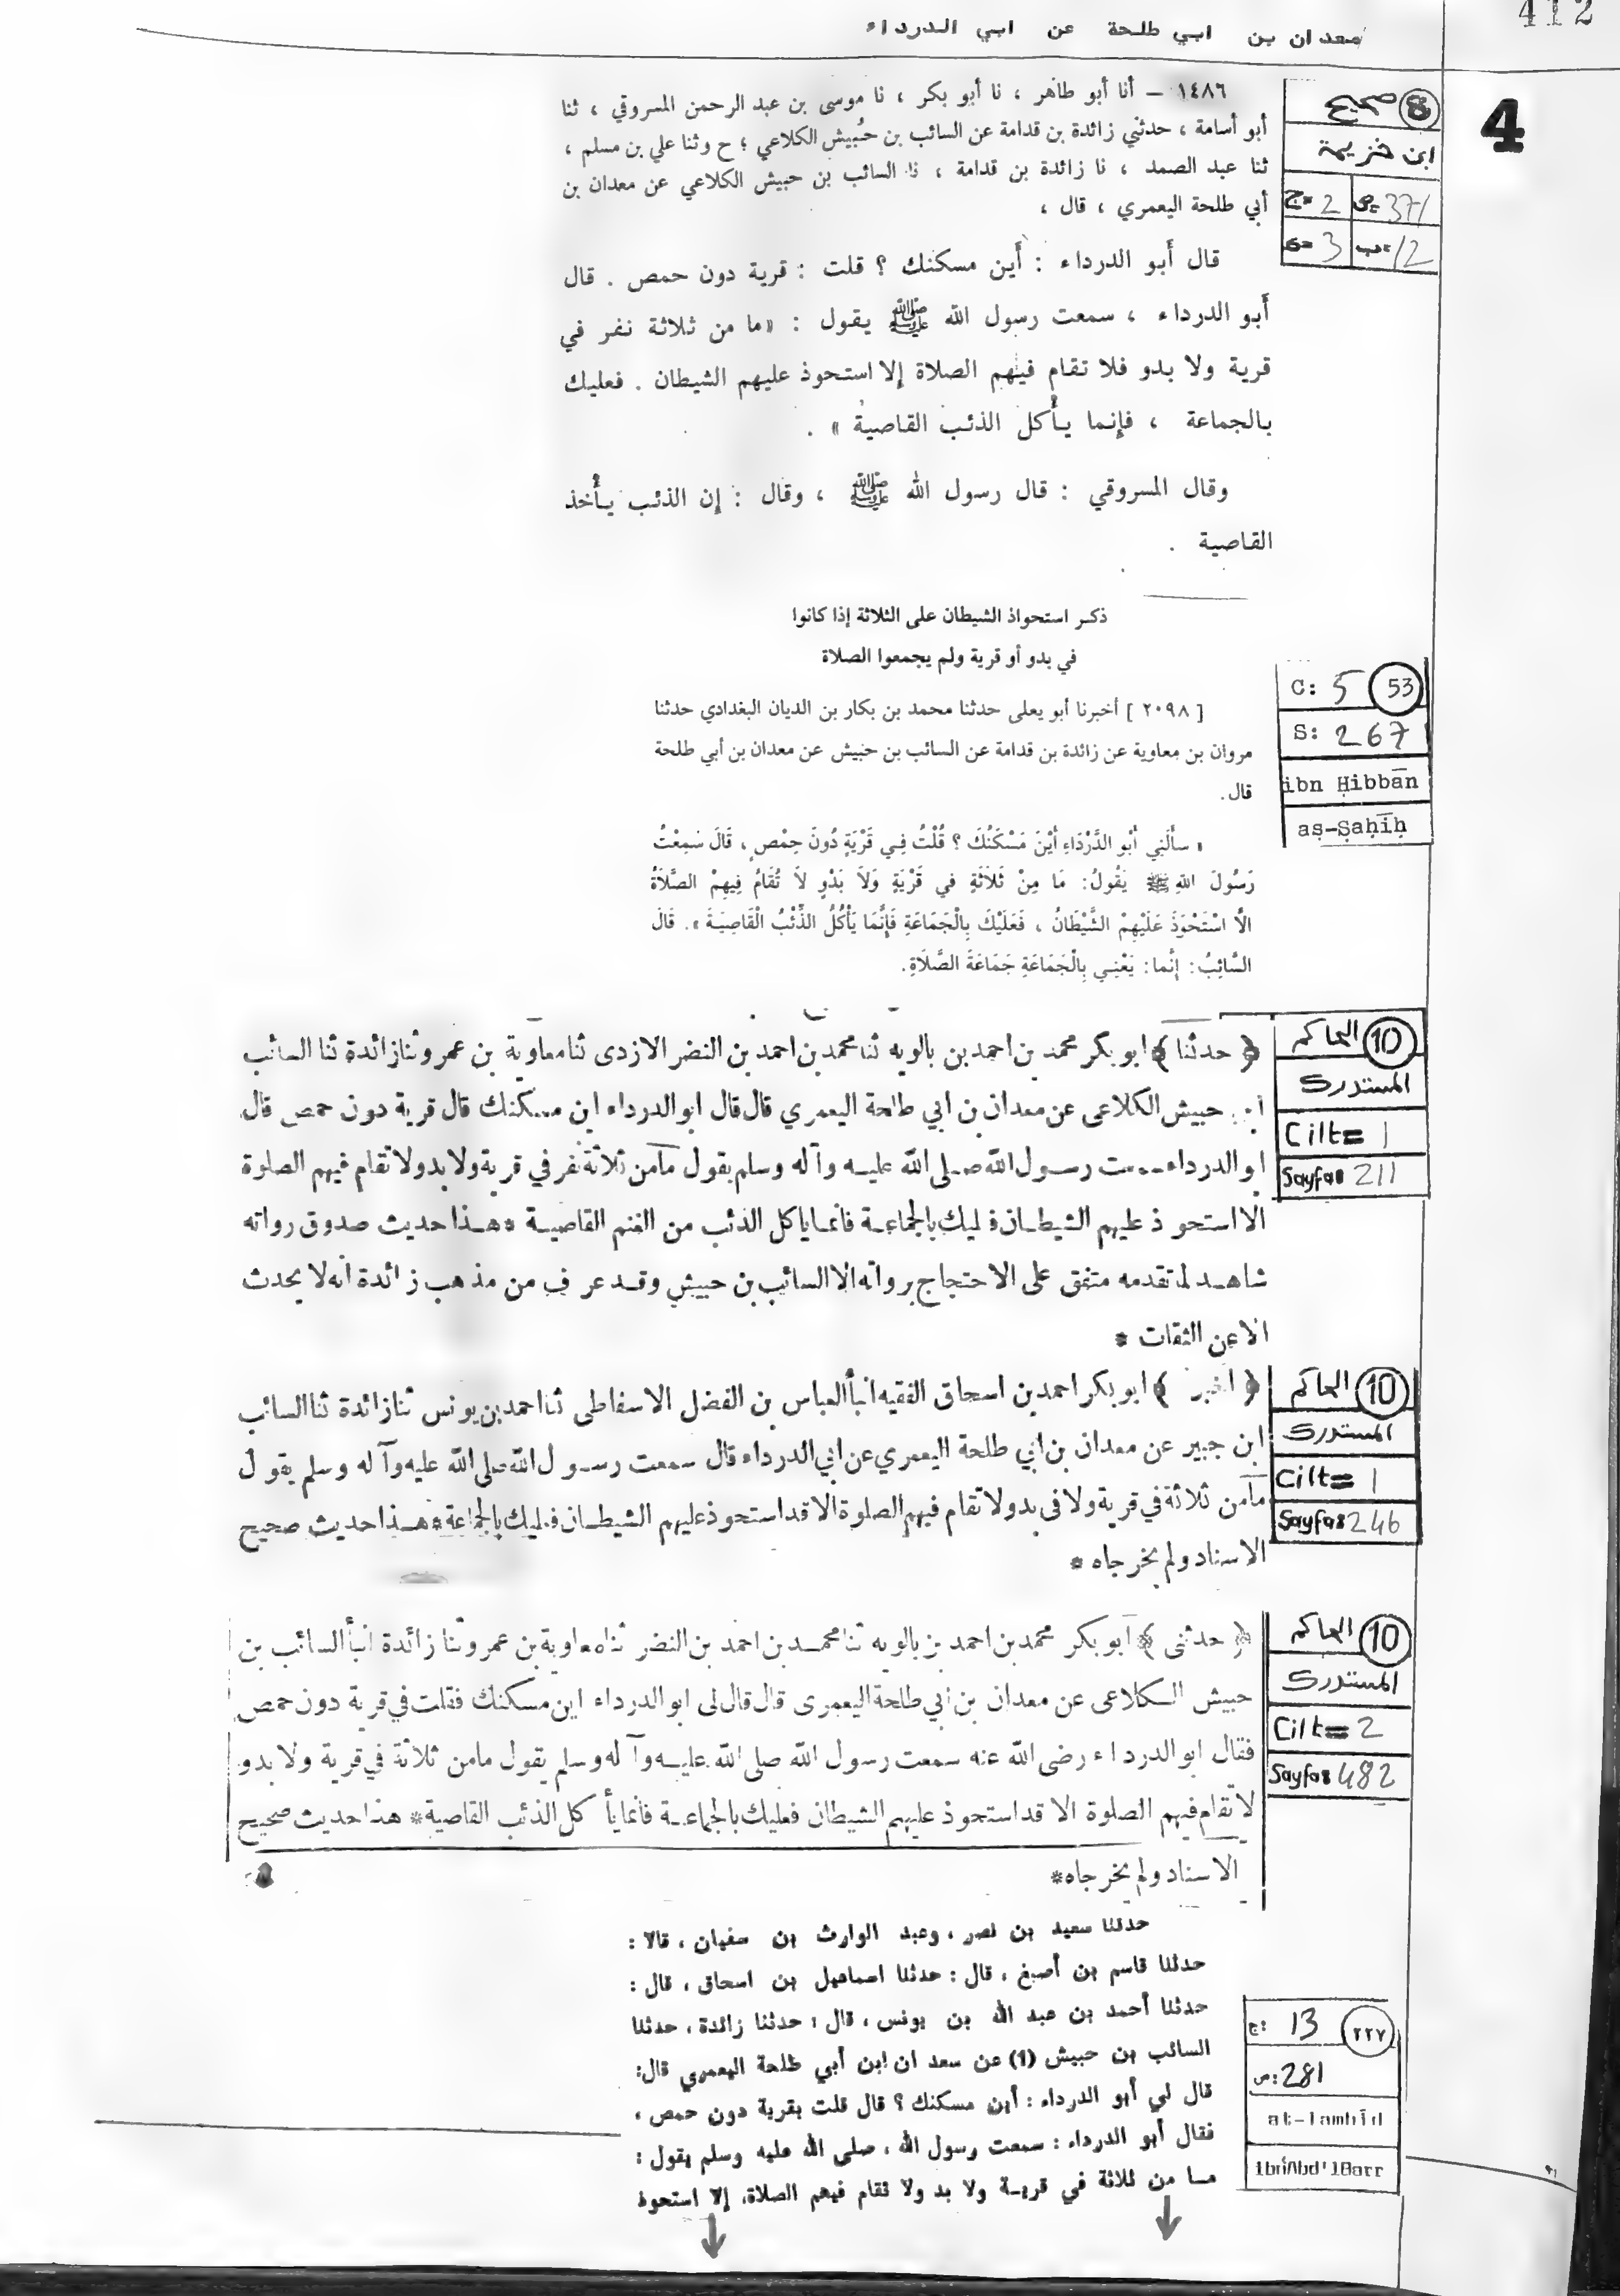 412
معدان بن ابي طلحة عن ابي الدرداء
4
8 صحيح
ابن خزيمة
ج= 2 ص= 371
ك= 3 ب= 12
١٤٨٦ – أنا أبو طاهر ، نا أبو بكر ، نا موسى بن عبد الرحمن المسروقي ، ثنا
أبو أسامة ، حدثني زائدة بن قدامة عن السائب بن حُبيش الكلاعي ؛ ح وثنا علي بن مسلم ،
ثنا عبد الصمد ، نا زائدة بن قدامة ، نا السائب بن حبيش الكلاعي عن معدان بن
أبي طلحة اليعمري ، قال ،
قال أبو الدرداء : أين مسكنك ؟ قلت : قرية دون حمص . قال
أبو الدرداء ، سمعت رسول الله ﷺ يقول : «ما من ثلاثة نفر في
قرية ولا بدو فلا تقام فيهم الصلاة إلا استحوذ عليهم الشيطان . فعليك
بالجماعة ، فإنما يأكل الذئب القاصية » .
وقال المسروقي : قال رسول الله ﷺ ، وقال : إن الذئب يأخذ
القاصية .
ذكر استحواذ الشيطان على الثلاثة إذا كانوا
في بدو أو قرية ولم يجمعوا الصلاة
C: 5 53
S: 267
ibn Ḥibbān
aṣ-Ṣaḥīḥ
[ ٢٠٩٨ ] أخبرنا أبو يعلى حدثنا محمد بن بكار بن الديان البغدادي حدثنا
مروان بن معاوية عن زائدة بن قدامة عن السائب بن حبيش عن معدان بن أبي طلحة
قال .
« سألَني أبُو الدَّرْدَاءِ أيْنَ مَسْكَنُكَ ؟ قُلْتُ فِي قَرْيَةٍ دُونَ حِمْصٍ ، قَالَ سَمِعْتُ
رَسُولَ اللهِ ﷺ يَقُولُ : مَا مِنْ ثَلَاثَةٍ في قَرْيَةٍ وَلَا بَدْوٍ لاَ تُقَامُ فِيهِمْ الصَّلَاةُ
الَّا اسْتَحْوَذَ عَلَيْهِمْ الشَّيْطَانُ ، فَعَلَيْكَ بِالْجَمَاعَةِ فَإنَّمَا يَأْكُلُ الذِّئْبُ الْقَاصِيَةَ » . قَالَ
السَّائِبُ : إنَّما : يَعْنِي بِالْجَمَاعَةِ جَمَاعَةَ الصَّلَاةِ .
10 الحاكم
المستدرك
Cilt= 1
Sayfa: 211
﴿ حدثنا ﴾ ابو بكر محمد بن احمد بن بالويه ثنا محمد بن احمد بن النضر الازدى ثنا معاوية بن عمرو ثنا زائدة ثنا السائب
حبيش الكلاعى عن معدان بن ابي طلحة اليعمري قال قال ابو الدرداء اين مسكنك قال قرية دون حمص قال
ابو الدرداء سمعت رسول الله صلى الله عليه وآله وسلم يقول مامن ثلاثة نفر في قرية ولا بدو لا تقام فيهم الصلوة
الا استحوذ عليهم الشيطان فعليك بالجماعة فانما يا كل الذئب من الغنم القاصية * هذا حديث صدوق رواته
شاهد لما تقدمه متفق على الاحتجاج برواته الا السائب بن حبيش وقد عرف من مذهب زائدة انه لا يحدث
الا عن الثقات *
10 الحاكم
المستدرك
Cilt= 1
Sayfa: 246
﴿ اخبرنا ﴾ ابو بكر احمد بن اسحاق الفقيه انبأ العباس بن الفضل الاسفاطى ثنا احمد بن يونس ثنا زائدة ثنا السائب
ابن جبير عن معدان بن ابي طلحة اليعمري عن ابي الدرداء قال سمعت رسول الله صلى الله عليه وآله وسلم يقول
مامن ثلاثة في قرية ولا في بدو لا تقام فيهم الصلوة الا قد استحوذ عليهم الشيطان فعليك بالجماعة * هذا حديث صحيح
الاسناد ولم يخرجاه *
10 الحاكم
المستدرك
Cilt= 2
Sayfa: 482
﴿ حدثنى ﴾ ابو بكر محمد بن احمد بن بالويه ثنا محمد بن احمد بن النضر ثنا معاوية بن عمرو ثنا زائدة انبأ السائب بن
حبيش الكلاعى عن معدان بن ابي طلحة اليعمرى قال قال لى ابو الدرداء اين مسكنك فقلت في قرية دون حمص
فقال ابو الدرداء رضى الله عنه سمعت رسول الله صلى الله عليه وآله وسلم يقول مامن ثلاثة في قرية ولا بدو
لا تقام فيهم الصلوة الا قد استحوذ عليهم الشيطان فعليك بالجماعة فانما يأ كل الذئب القاصية * هذا حديث صحيح
الاسناد ولم يخرجاه *
ج: 13 ٢٢٧
ص: 281
at-Tamhīd
ibn Abd'lBarr
حدثنا سعيد بن نصر ، وعبد الوارث بن سفيان ، قالا :
حدثنا قاسم بن أصبغ ، قال : حدثنا اسماعيل بن اسحاق ، قال :
حدثنا أحمد بن عبد الله بن يونس ، قال : حدثنا زائدة ، حدثنا
السائب بن حبيش (1) عن سعد ان ابن أبي طلحة اليعمري قال:
قال لي أبو الدرداء : أين مسكنك ؟ قال قلت بقرية دون حمص ،
فقال أبو الدرداء : سمعت رسول الله ، صلى الله عليه وسلم يقول :
مـا من ثلاثة في قريـة ولا بد ولا تقام فيهم الصلاة، إلا استحوذ